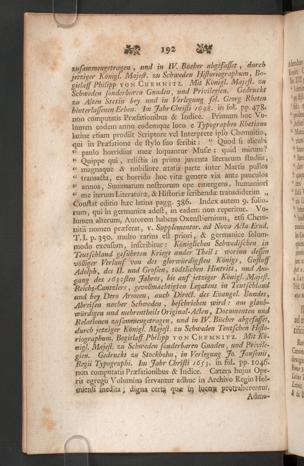 192
zusammengetragen, und in IV. Bücher abgefasset, durch
jetziger Königl. Majest. zu Schweden Historiographum, Bo-
gislaff Philipp VON CHEMNITZ. Mit Königl. Majest. zu
Schweden sonderbaren Gnaden, und Privilegien. Gedruckt
zu Alten Stetin bey und in Verlegung sel. Georg Rheten
hinterlassenen Erben. Im Jahr Christi 1648. in fol. pp. 478.
non computatis Præfationibus & Indice. Primum hoc Vo-
lumen eodem anno eodemque loco e Typographeo Rhetiano
latine etiam prodiit Scriptore vel Interprete ipso Chemnitio,
qui in Præfatione de stylo suo scribit: " Quod si alicubi
" paulo horridius meæ loquantur Musæ: quid mirum?
" Quippe qui, relictis in prima juventa literarum studiis,
" magnaque & nobiliore ætatis parte inter Martis pulvos
" transacta, ex horrido hoc vitæ genere vix ante paucolos
" annos, Summorum nostrorum ope emergens, humaniori
" me iterum Literaturæ, & Historiæ scribendæ transdiderim.
Constat editio hæc latina pagg. 386. Index autem 9. folio-
rum, qui in germanica adest, in eadem non reperitur. Vo-
lumen alterum, Autorem habens Oxenstiernium, etsi Chem-
nitii nomen præferat, v. Supplementor. ad Nova Acta Erud.
T. I. p. 390. multo rarius est priori, & germanice solum-
modo excusum, inscribitur: Königlichen Schwedischen in
Teutschland geführten Kriegs ander Theil: worinn dessen
völliger Verlauf von des glorwürdigsten Königs, Gustaff
Adolph, des II. und Grossen, tödtlichen Hintritt, und Aus-
gang des 1632sten Jahres, bis auf jetziger Königl. Majest.
Reichs-Cantzlers, gevollmächtigten Legatens in Teutschland
und bey Dero Armeen, auch Direct. des Evangel. Bundes,
Abreisen nacher Schweden, beschrieben wird: aus glaub-
würdigen und mehrentheils Original-Acten, Documenten und
Relationen zusammengetragen, und in IV. Bücher abgefasset,
durch jetziger Königl. Majest. zu Schweden Teutschen Histo-
riographum, Bogislaff Philipp VON CHEMNITZ. Mit Kö-
nigl. Majest. zu Schweden sonderbaren Gnaden, und Privile-
gien. Gedruckt zu Stockholm, in Verlegung Jo. Janssonii,
Regii Typographi. Im Jahr Christi 1653. in fol. pp. 1046.
non computatis Præfationibus & Indice. Cætera hujus Ope-
ris egregii Volumina servantur adhuc in Archivo Regio Hol-
miensi inedita; digna certe quæ in lucem protraherentur.
Admo-